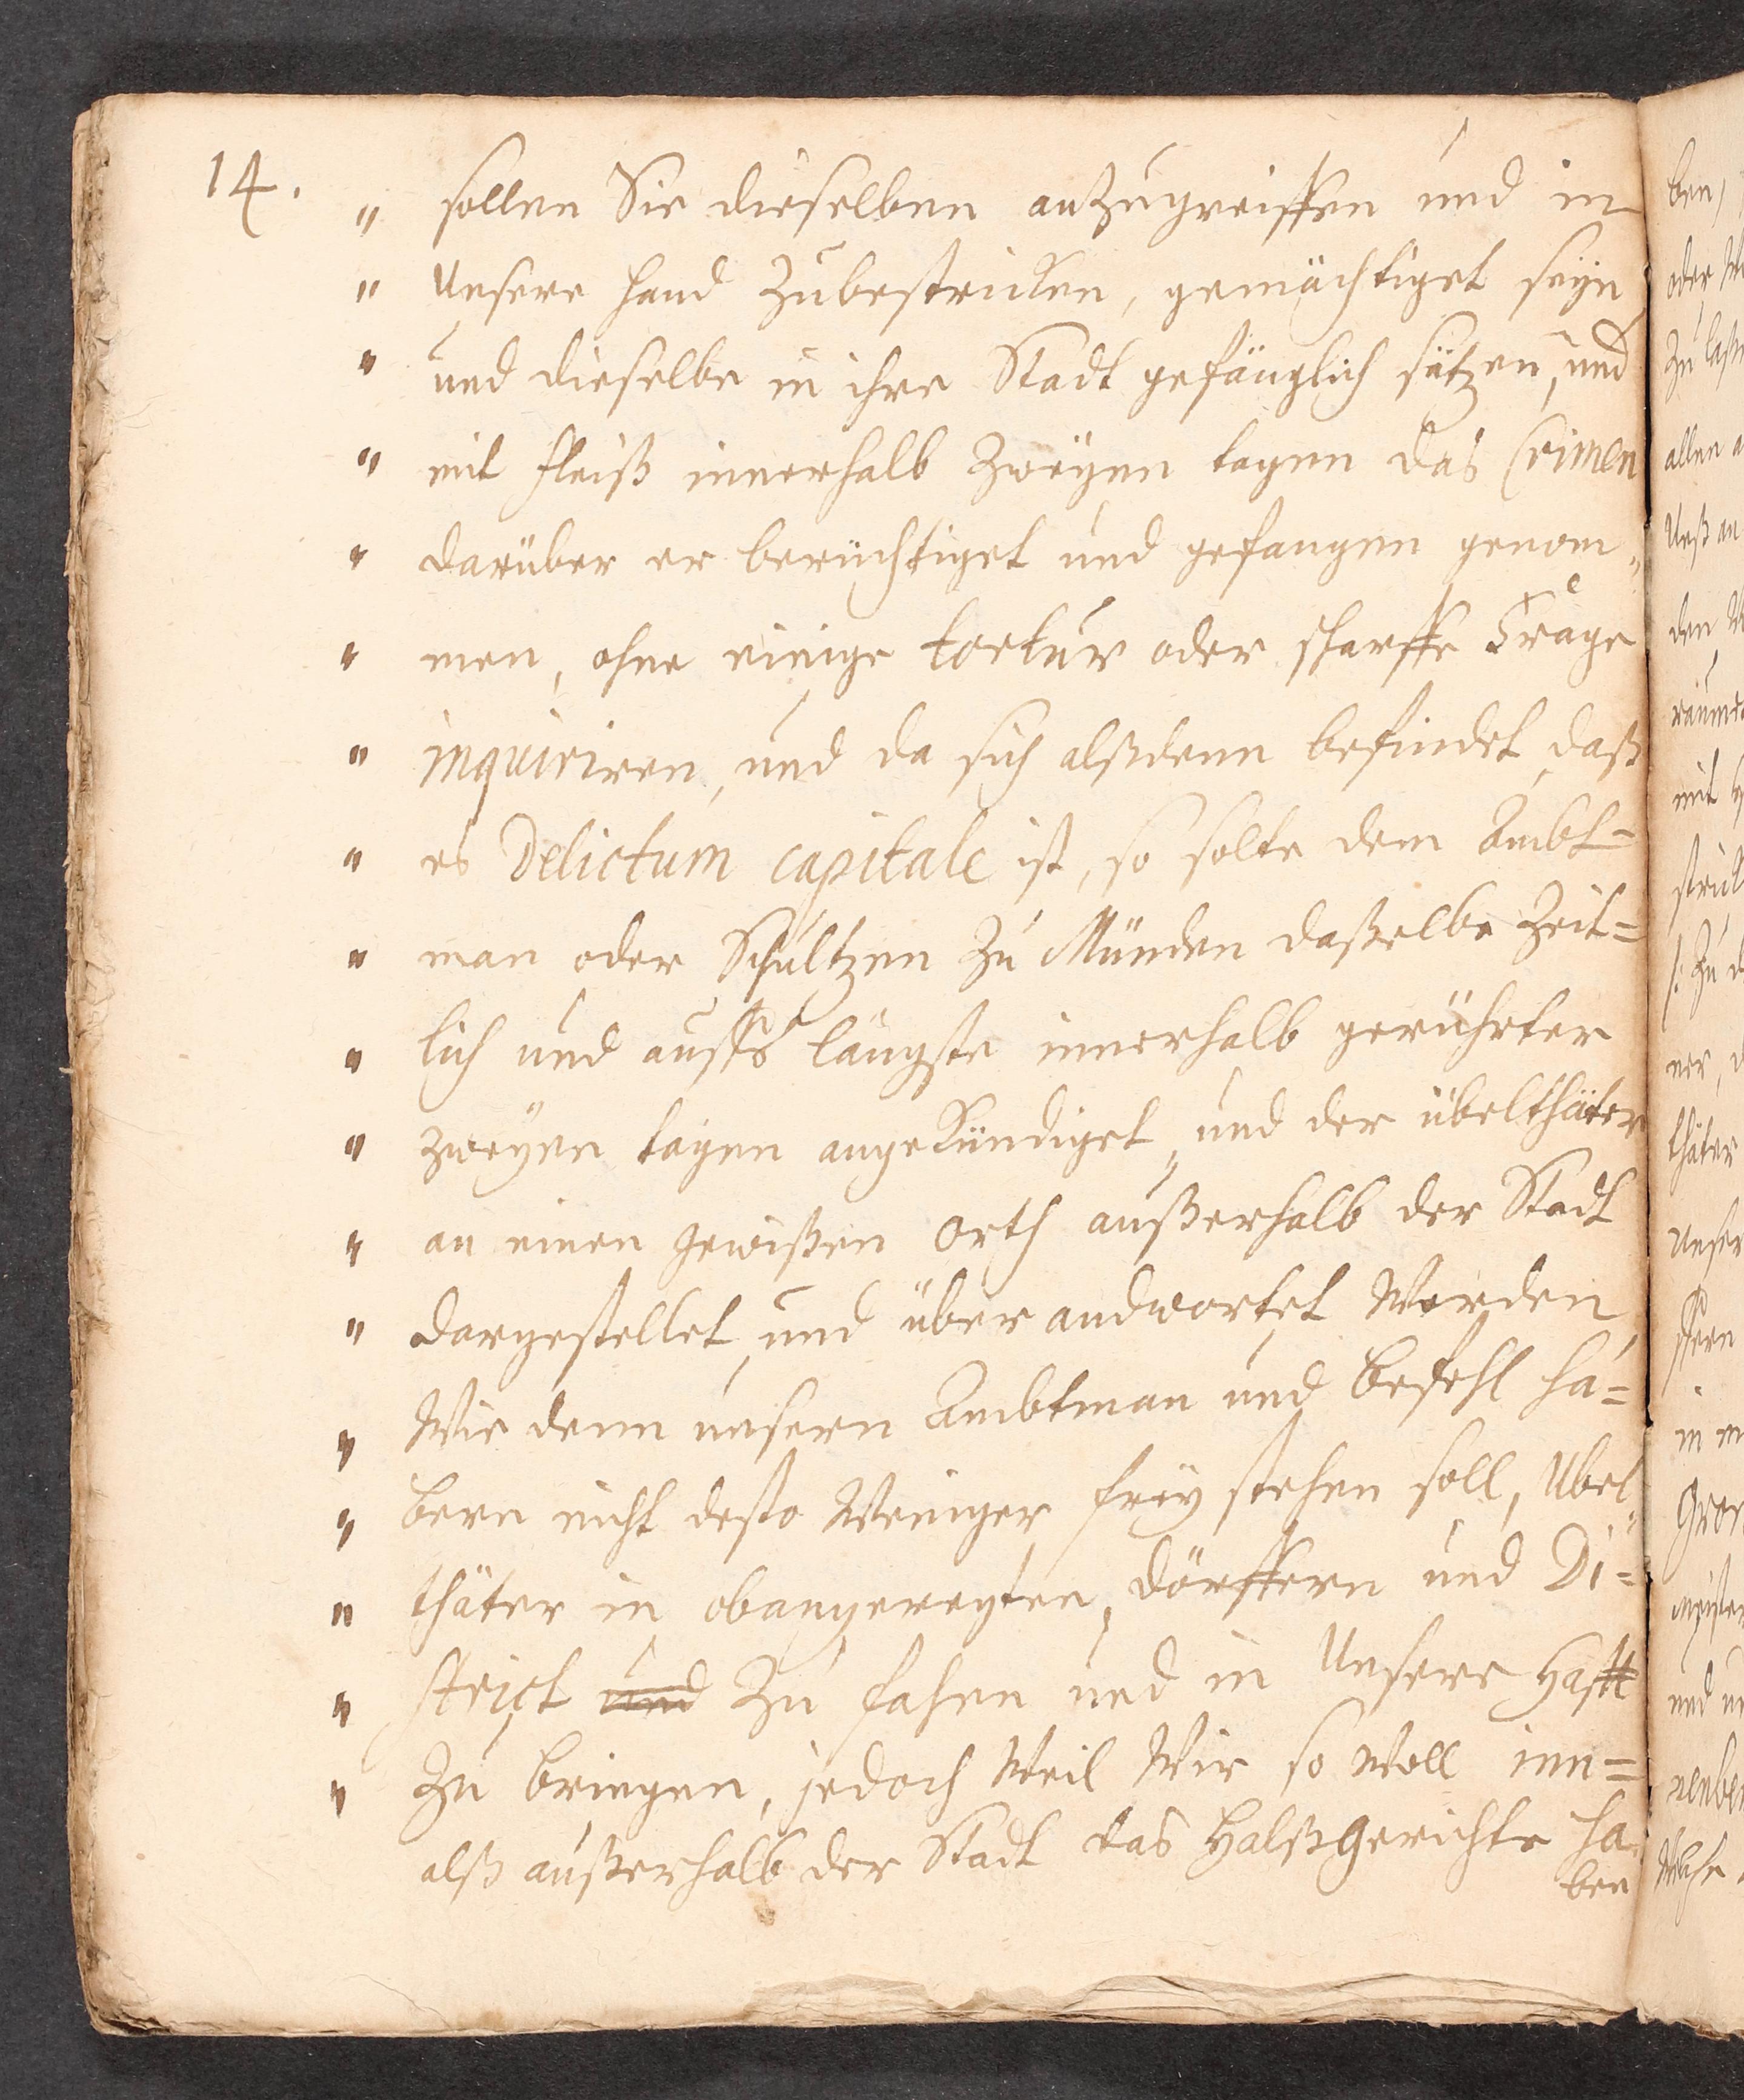 14.
" sollen Sie dieselben anzugreiffen und in
" Unsere hand zubestricken, gemächtiget seyn
" und dieselbe in ihre Stadt gefänglich sätzen, und
" mit fleiß innerhalb zweyen tagen das Crimen
" darüber er berüchtiget und gefangen genom„
" men, ohne einige tortur oder scharffe Frage
" inquiriren, und da sich alßdenn befindet, daß
" es Delictum capitale ist, so solte dem Ambt=
" man oder Schultzen zu Münden daßelbe Zeit=
" lich und auffs längste innerhalb gerührter
" zweyen tagen angekündiget, und der übelthäter
" an einen gewißen orth außerhalb der Stadt
" dargestellet, und überandwortet Werden,
" Wie denn unsern Ambtman und befehl ha=
" bern nicht desto Weniger frey stehen soll, Ubel„
" thäter in obangeregten, dörffern und Di=
" strict und zu fahen und in Unsere Hafft
" zu bringen, jedoch Weil Wir so Woll inn=
alß außerhalb der Stadt das Halßgerichte ha„
ben
ben,
oder
zu
allen
den
mit
ner,
thäter
Unser
und